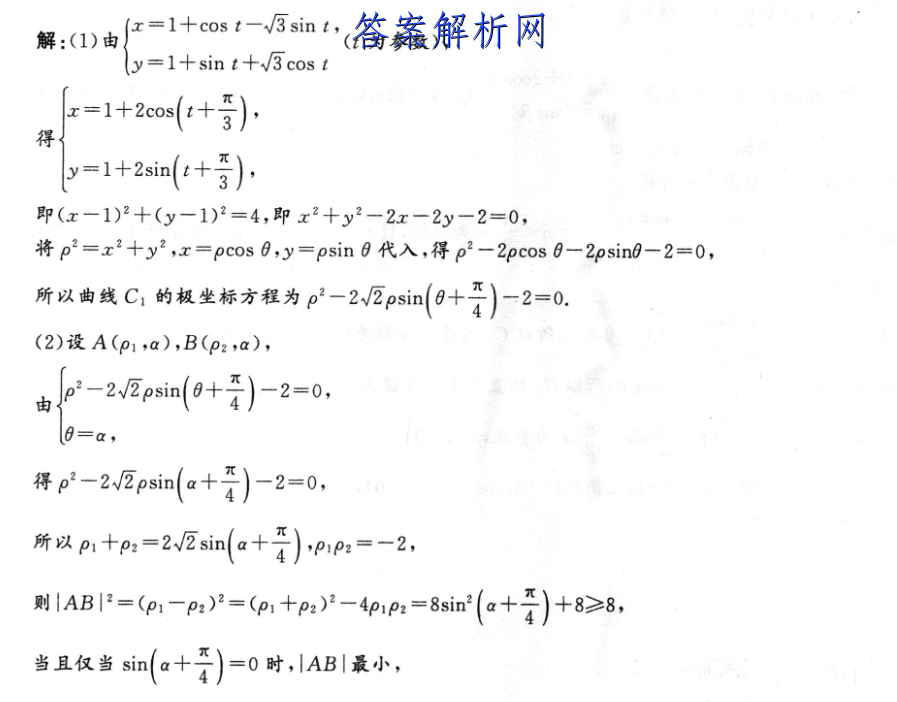 答案解析网
解:(1)由{x=1+cos t-√3sin t, y=1+sin t+√3cos t (t为参数),
得{x=1+2cos(t+π/3), y=1+2sin(t+π/3),
即(x-1)²+(y-1)²=4,即 x²+y²-2x-2y-2=0,
将 ρ²=x²+y²,x=ρcos θ,y=ρsin θ 代入,得 ρ²-2ρcos θ-2ρsinθ-2=0,
所以曲线 C₁ 的极坐标方程为 ρ²-2√2ρsin(θ+π/4)-2=0.
(2)设 A(ρ₁,α),B(ρ₂,α),
由{ρ²-2√2ρsin(θ+π/4)-2=0, θ=α,
得 ρ²-2√2ρsin(α+π/4)-2=0,
所以 ρ₁+ρ₂=2√2sin(α+π/4),ρ₁ρ₂=-2,
则|AB|²=(ρ₁-ρ₂)²=(ρ₁+ρ₂)²-4ρ₁ρ₂=8sin²(α+π/4)+8≥8,
当且仅当 sin(α+π/4)=0 时,|AB|最小,